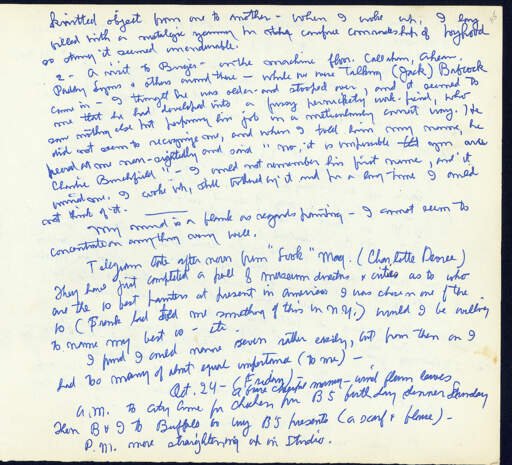 knotted object from one to another – When I woke up, I long
filled with a nostalgic yearning for strong carefree comradeship of boyhood
so strong it seemed unendurable.
2 – A visit to Birge's – on the machine floor. Callahan, Ahern,
Paddy Lyons & others around there – while we were talking (Jack) Babcock
came in – I thought he was older and stooped over, and it seemed to
me that he had developed into a fussy pernickety sort of friend, who
saw nothing else but performing his job in a meticulously correct way. He
did not seem to recognize me, and when I told him my name, he
peered at me near-sightedly and said "no, it is impossible you are
Charlie Burchfield" – I could not remember his first name, and it
worried me. I woke up, still bothered by it and for a long time I could
not think of it.
My mind is a blank as regards painting – I cannot seem to
concentrate on anything very well.
Telegram late afternoon from "Look" Mag. (Charlotte Devree)
They have just completed a poll of museum directors & critics as to who
are the 10 best painters at present in America & I was chosen one of the
10 (Frank had told me something of this in N.Y.) would I be willing
to name my best 10 – etc.
I find I could name seven rather easily, but from then on I
had too many of about equal importance (to me) –
Oct. 24 – (Friday) –
a fine cheerful morning – wind blown leaves
A.M. to Cary's for chicken for B's birthday dinner Sunday
Then B & I to Buffalo to buy B's presents (a scarf & blouse) –
P.M. more straightening up in Studio.